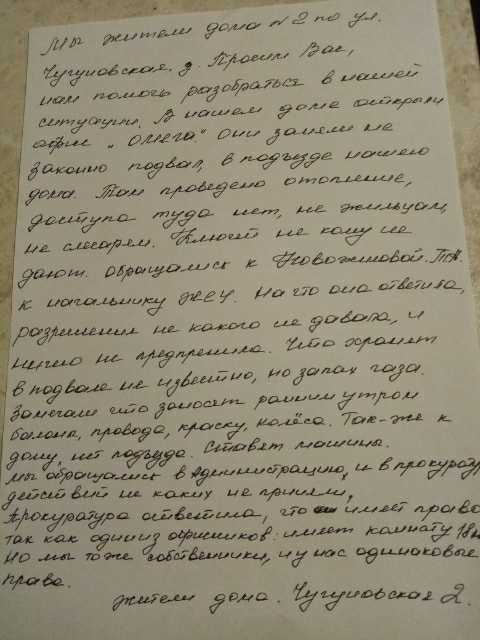 Мы жители дома N 2 по ул.
Чугуновская. Просим Вас,
нам помочь разобраться в нашей
ситуации. В нашем доме открыли
офис „Омега". Они заняли не
законно подвал, в подъезде нашего
дома. Там проведено отопление,
доступа туда нет, не жильцам,
не слесарем. Ключей не кому не
дают. Обращались к Новожиловой.
к начальнику ЖЕУ. На что она ответила,
разришения не какого не давала, и
ничего не предпренила. Что хранят
в подвале не известно, но запах газа.
Замечали что заносят ранним утром
балона, провода, краску, колёса. Так-же к
дому, нет подъезда. Ставят машины.
мы обращались в администрацию, и в прокуратур
действий не каких не приняли,
Прокуратура ответила, что имеет право
так как один из офисников: имеет комнату 18м
Но мы тоже собственники, и у нас одинаковые
права.
жители дома. Чугуновская 2.